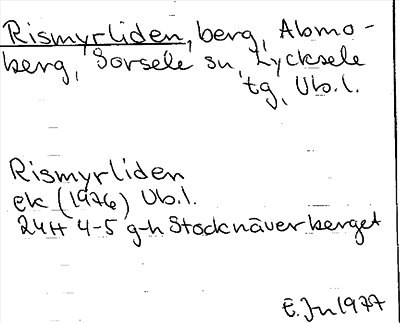 Rismyrliden, berg, Abmo-
berg, Sorsele sn, Lycksele
tg, Vb.l.
Rismyrliden
ek (1976) Vb.l.
24H 4-5 g-h Stocknäverberget
E. Jn 1977